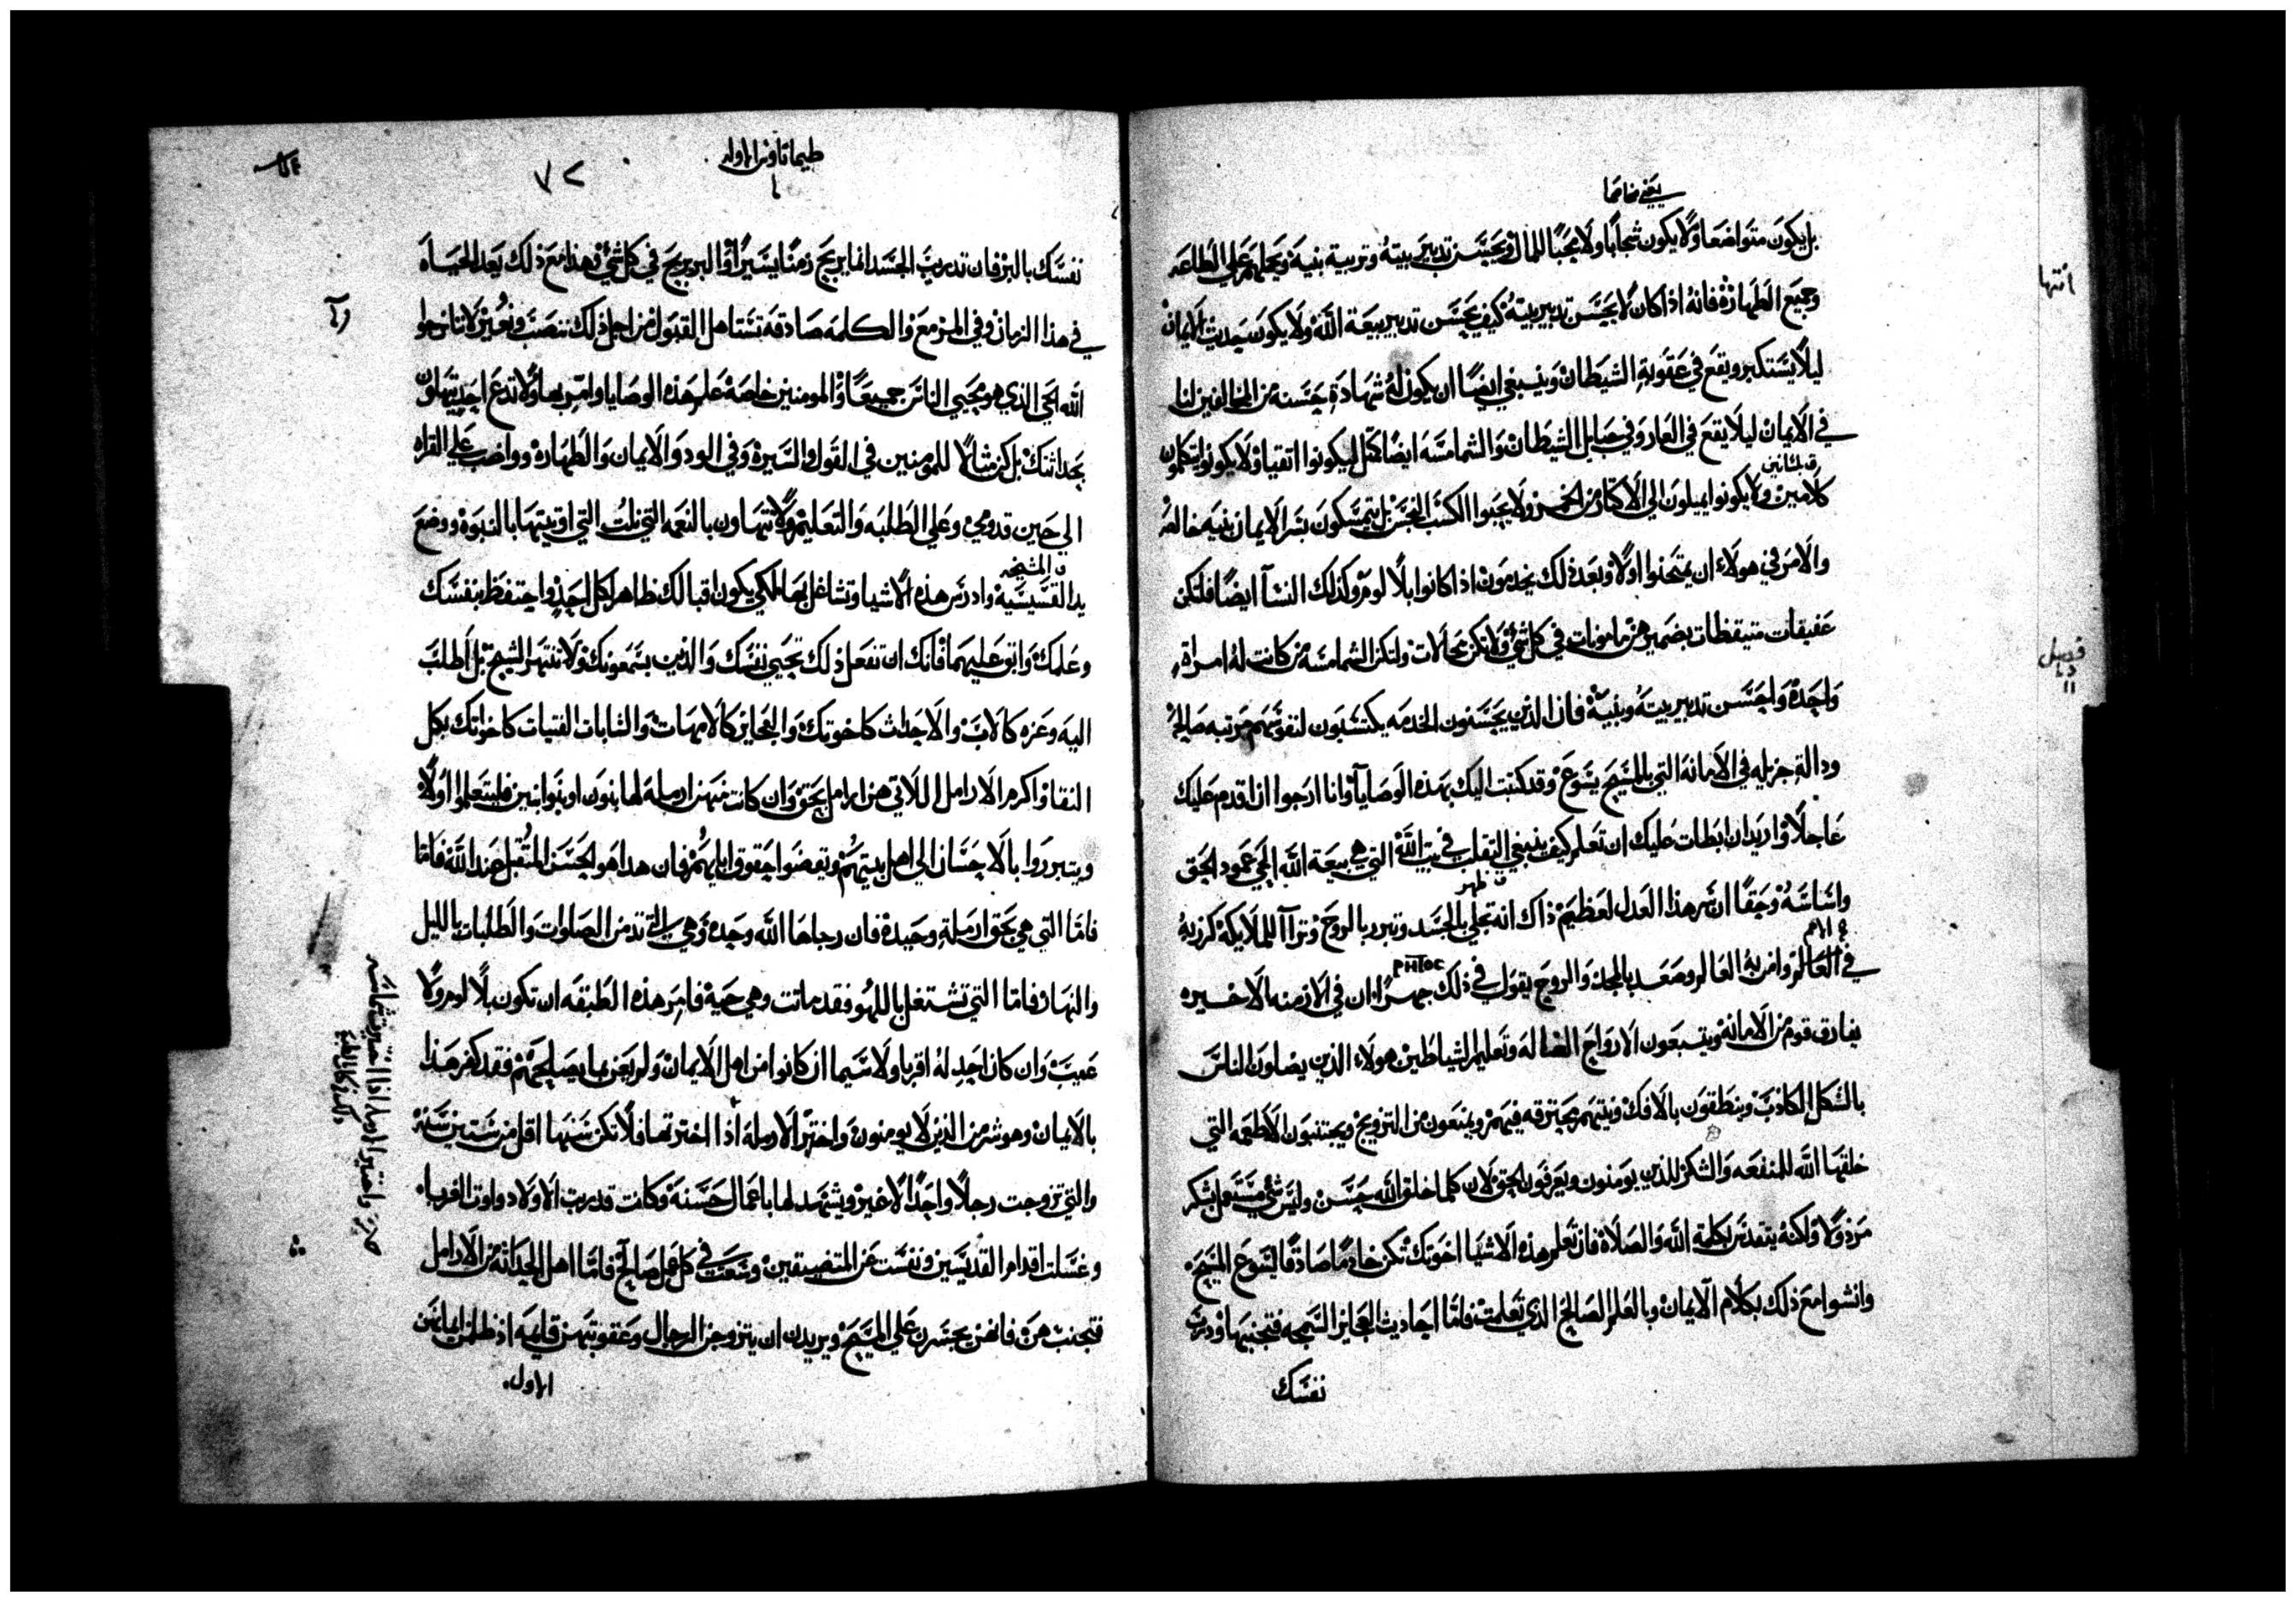 يعني مخاصما
بل يكون متواضعا ولا يكون شجابا ولا يحبا للمال ويحسن تدبير بيته وتربية بنيه ويحملهم علي الطاعه
وجميع الطهارة فانه اذا كان لا يحسن تدبير بيته كيف يحسن تدبير بيعة الله ولا يكون حديث الايمان
ليلا يستكبر ويقع في عقوبة الشيطان وينبغي ايضا ان يكون له شهادة حسنه من المخالفين لنا
في الايمان ليلا يقع في العار وفي حبايل الشيطان والشمامسه ايضا كمثل ليكونوا اتقيا ولا يكونوا يتكلمون
كلامين ولا يكونوا يميلون الي الاكثار من الخمر ولا يحبوا الكسب النجس بل يتمسكون بسر الايمان بنيه خالصه
والامر في هولاء ان يمتحنوا اولا وبعد ذلك يخدمون اذا كانوا بلا لوم وكذلك النسآ ايضا فلتكن
عفيفات متيقظات بضميرهن مامونات في كل شي ولا تكن محالات ولتكن الشمامسه من كانت له امراة
واحدة واحسن تدبير بيته وبنيه فان الذين يحسنون الخدمه يكتسبون لنفوسهم مرتبه صالحه
ودالة جزيله في الامانه التي بالمسيح يسوع وقد كتبت اليك بهذه الوصايا وانا ارجوا ان اقدم عليك
عاجلا واريد ان ابطات عليك ان تعلم كيف ينبغي التقلب في بيت الله التي هي بيعة الله الحي عمود الحق
واساسه وحقا ان سر هذا العدل لعظيم ذاك انه تجلي بالجسد وتبرر بالروح وترآا للملايكه كرز به
في العالم وامن به العالم وصعد بالمجد والروح يقول في ذلك جهرا ان في الازمنه الاخيره
يفارق قوم من الامانه ويتبعون الارواح الضاله وتعليم الشياطين هولاء الذين يضلون الناس
بالشكل الكاذب وينطقون بالافك ونيتهم محترقه فيهم ويمنعون من التزويج ويجتنبون الاطعمه التي
خلقها الله للمنفعه والشكر للذين يومنون ويعرفون الحق لان كلما خلق الله حسن وليس شي مستعمل بشكر
مرذولا ولكنه يتقدس بكلمة الله والصلاة فان تعلم هذه الاشيا اخوتك تكن خادما صادقا ليسوع المسيح
وانشوا مع ذلك بكلام الايمان وبالعلم الصالح الذي تعلمت فاما احاديث العجايز السمجه فتجنبها ودرب
نفسك
انتها
طيماتاوس الاوله
٧٢
نفسك بالبر فان تدريب الجسد انما يربح زمنا يسيرا والبر يربح في كل شي وهذا مع ذلك يعد الحياه
في هذا الزمان وفي المزمع والكلمه صادقه تستاهل القبول من اجل ذلك ننصب ونعير لانا نرجوا
الله الحي الذي هو محيي الناس جميعا والمومنين خاصة علم هذه الوصايا وامر بها ولا تدع احد يتهاون
بحداثتك بل كن مثالا للمومنين في القول والسيره وفي الود والايمان والطهاره وواضب علي القراه
الي حين قدومي وعلي الطلبه والتعليم ولا تتهاون بالنعمه التي نلت التي اوتيتها بالنبوه ووضع
يد القسيسيه وادرس هذه الاشيا وتشاغل بها لكي يكون اقبالك ظاهرا لكل احد واحتفظ بنفسك
وعلمك وابق عليهما فانك ان تفعل ذلك تحيي نفسك والذين يسمعونك ولا تنتهر الشيخ بل اطلب
اليه وعزه كالاب والاحداث كاخوتك والعجايز كالامهات والشابات الفتيات كاخواتك بكل
النقا واكرم الارامل اللاتي هن ارامل بحق وان كانت منهن ارملة لها بنون او بنوا بنين فليتعلموا اولا
ويتبرروا بالاحسان الي اهل بيتهم ويقضوا حقوق ابايهم فان هدا هو الحسن المتقبل عند الله فاما
فاما التي هي بحق ارملة وحيدة فان رجاها الله وحده وهي التي تدمن الصلوات والطلبات بالليل
والنهار فاما التي تشتغل باللهو فقد ماتت وهي حية فامر هذه الطبقه ان تكون بلا لوم ولا
عيب وان كان احد له اقربا ولا سيما ان كانوا من اهل الايمان ولم يعن بما يصلحهم فقد كفر هذا
بالايمان وهو شر من الذين لا يومنون واختر الارملة اذا اخترتها فلا تكن سنها اقل من ستين سنه
والتي تزوجت رجلا واحدا لا غير ويشهد لها باعمال حسنة وكانت قد ربت الاولاد واوت الغربا
وغسلت اقدام القديسين ونفست عن المتضيقين وسعت في كل عمل صالح فاما اهل الحداثة من الارامل
فتجنب هن فانهن يجسرن علي المسيح ويريدن ان يتزوجن الرجال وعقوبتهن قايمه اذ ظلمن ايمانهن
الاول